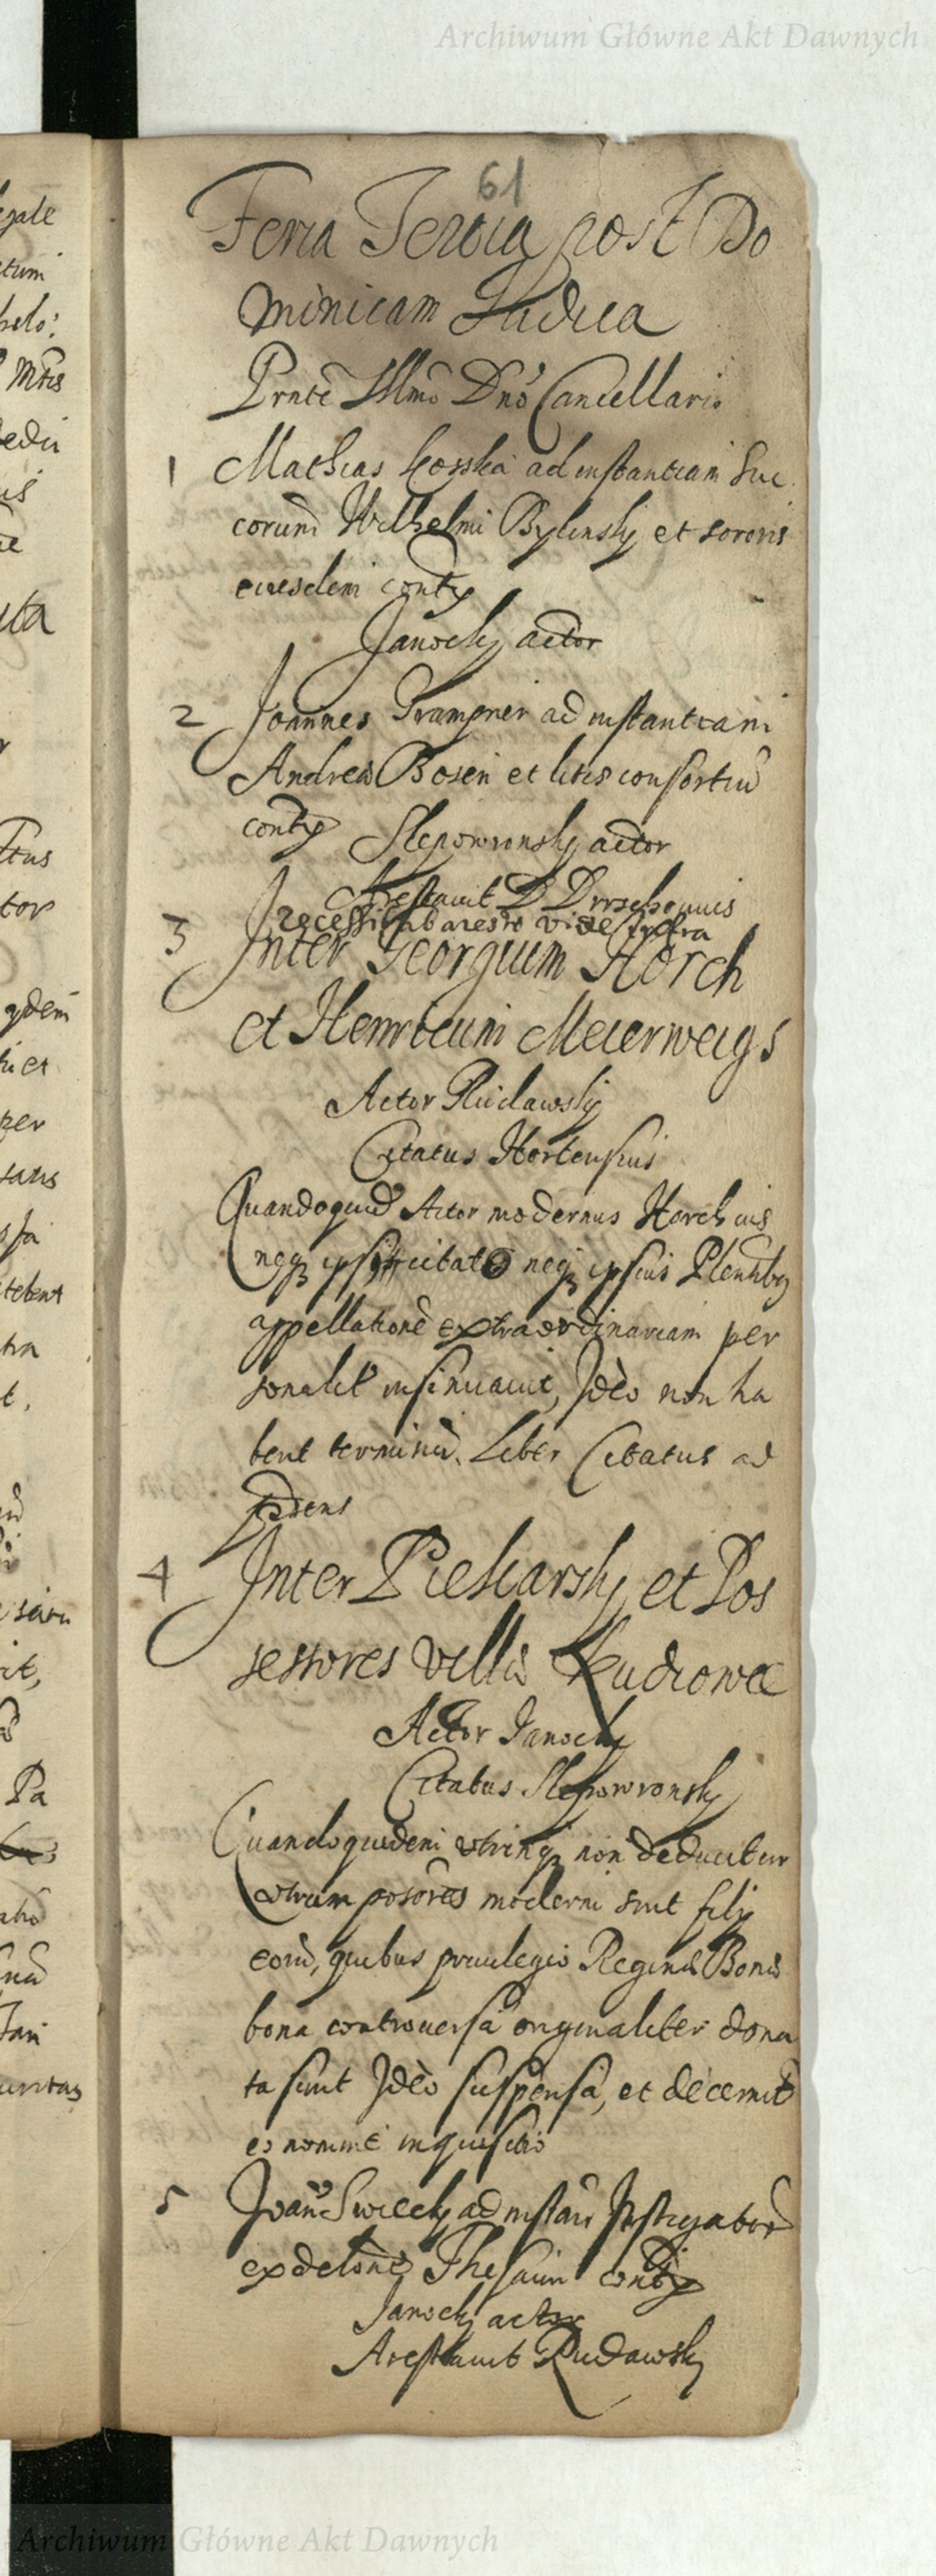 Archiwum Główne Akt Dawnych
61
Feria Tertia post Do
minicam Judica
Prnte Illmo Dno Cancellario
1 Mathias Kosska ad instantiam Suc
corum Wilhelmi Bylinsky et sororis
eiusdem
Janocky actor
2 Joannes Grampner ad instantiam
Andreæ Bosen et litis consortiu
Slepowronsky actor
Arestavit D
recessit ab aresto vide infra
3 Inter Georgium Horch
et Henricum Meierweigs
Actor Rudawsky
Citatus Hortensius
Quandoquid Actor modernus Horchius
neq ipsi citato neq ipsius Plenibq
appellatione extraordinariam per
sonalit insinuavit, Ideo non ha
bent terminu. Liber Citatus ad
prdens
4 Inter Piekarsky et Pos
sessores villæ Rudrowæ
Actor Janocky
Citatus Slepowronsky
Quandoquidem utrinq non deducitur
utrum posores moderni sint filij
eoru, quibus privilegio Reginæ Bonæ
bona controversa originaliter dona
ta sunt Ideo suspensa, et decernit
eo nomine inquisitio
5 Joan Swiecky ad instan Instigatore
ex delone Thesauri
Janocky actor
Arestavit Rudawsky
egale
tum
helo:
Mtis
edii
is
uta
r
tus
tor
qdem
ti et
per
satis
sſa
tebent
tra
t,
rit,
Pa
Jan
Archiwum Główne Akt Dawnych